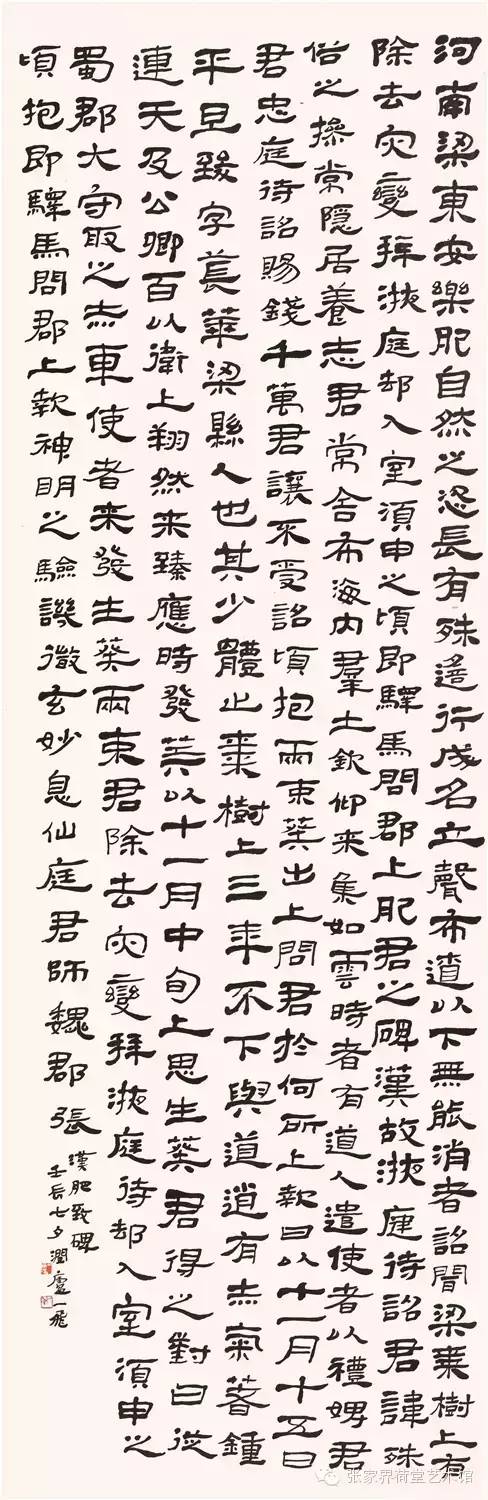 河南梁東安樂肥自然之恣長有殊遠行成名立聲布遺以下無能消者詔聞梁棗樹上有
除去灾變拜掖庭却入室須申之頃即驛馬問郡上肥君之碑漢故掖庭待詔君諱殊
俗之操常隱居養志君常舍布海内羣土欽仰来集如雲時者有道人遣使者以禮娉君
君忠庭待詔賜錢千萬君讓不受詔頃抱兩束葵出上問君於何所上報曰以十一月十五日
平旦致字萇華梁縣人也其少體止棗樹上三年不下與道逍有赤氣著鍾
連天及公卿百以衛上翔然来臻應時發葵以十一月中旬上思生葵君得之對曰從
蜀郡大守取之赤車使者来發生葵兩束君除去灾變拜掖庭待却入室須申之
頃抱即驛馬問郡上報神明之驗譏徹玄妙息仙庭君師魏郡張
漢肥致碑
壬辰七夕潤廬一飛
张家界荷堂艺术馆